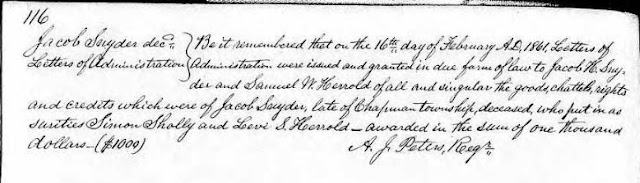 116
Jacob Snyder decd. Be it remembered that on the 16th day of February A.D. 1861, Letters of
Letters of Administration Administration were issued and granted in due form of law to Jacob H. Sny-
der and Samuel W. Herrold of all and singular the goods, chattels, rights
and credits which were of Jacob Snyder, late of Chapman township, deceased, who put in as
sureties Simon Sholly and Levi S. Herrold — awarded in the sum of one thousand
dollars — ($1000) A. J. Peters, Regr.